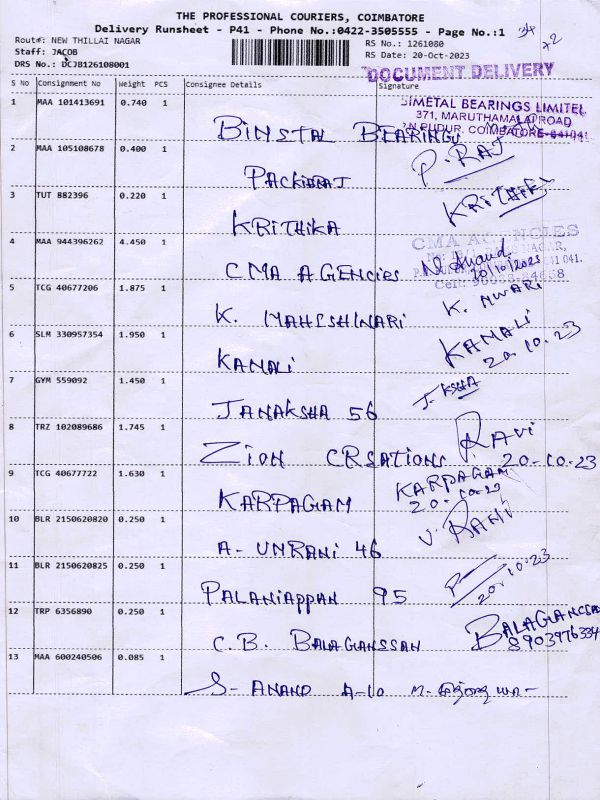 THE PROFESSIONAL COURIERS, COIMBATORE
Delivery Runsheet - P41 - Phone No.:0422-3505555 - Page No.:1
34
x2
Route#: NEW THILLAI NAGAR
RS No.: 1261080
Staff: JACOB
RS Date: 20-Oct-2023
DRS No.: DCJB126108001
DOCUMENT DELIVERY
S No Consignment No Weight PCS Consignee Details Signature
1 MAA 101413691 0.740 1 BINSTAL BEARINGS
BIMETAL BEARINGS LIMITED
371, MARUTHAMALAI ROAD
PUDUR, COIMBATORE-641041
2 MAA 105108678 0.400 1 PACKIARAJ P. RAJ
3 TUT 882396 0.220 1 KRITHIKA
4 MAA 944396262 4.450 1 CMA AGENCIES N. Anand
CMA AGENCIES
20/10/2023
5 TCG 40677206 1.875 1 K. MAHESHWARI K. MWARI
6 SLM 330957354 1.950 1 KAMALI KAMALI
20.10.23
7 GYM 559092 1.450 1 JANAKSHA 56 J. KSHA
8 TRZ 102089686 1.745 1 ZION CRSATIONS RAVI
20-10-23
9 TCG 40677722 1.630 1 KARPAGAM KARPAGAM
20-10-23
10 BLR 2150620820 0.250 1 A- UNRANI 46 V. RANI
11 BLR 2150620825 0.250 1 PALANIAPPAN 95
20.10.23
12 TRP 6356890 0.250 1 C.B. BALAGANSSAN
8903976334
13 MAA 600240506 0.085 1 S- ANAND A-10